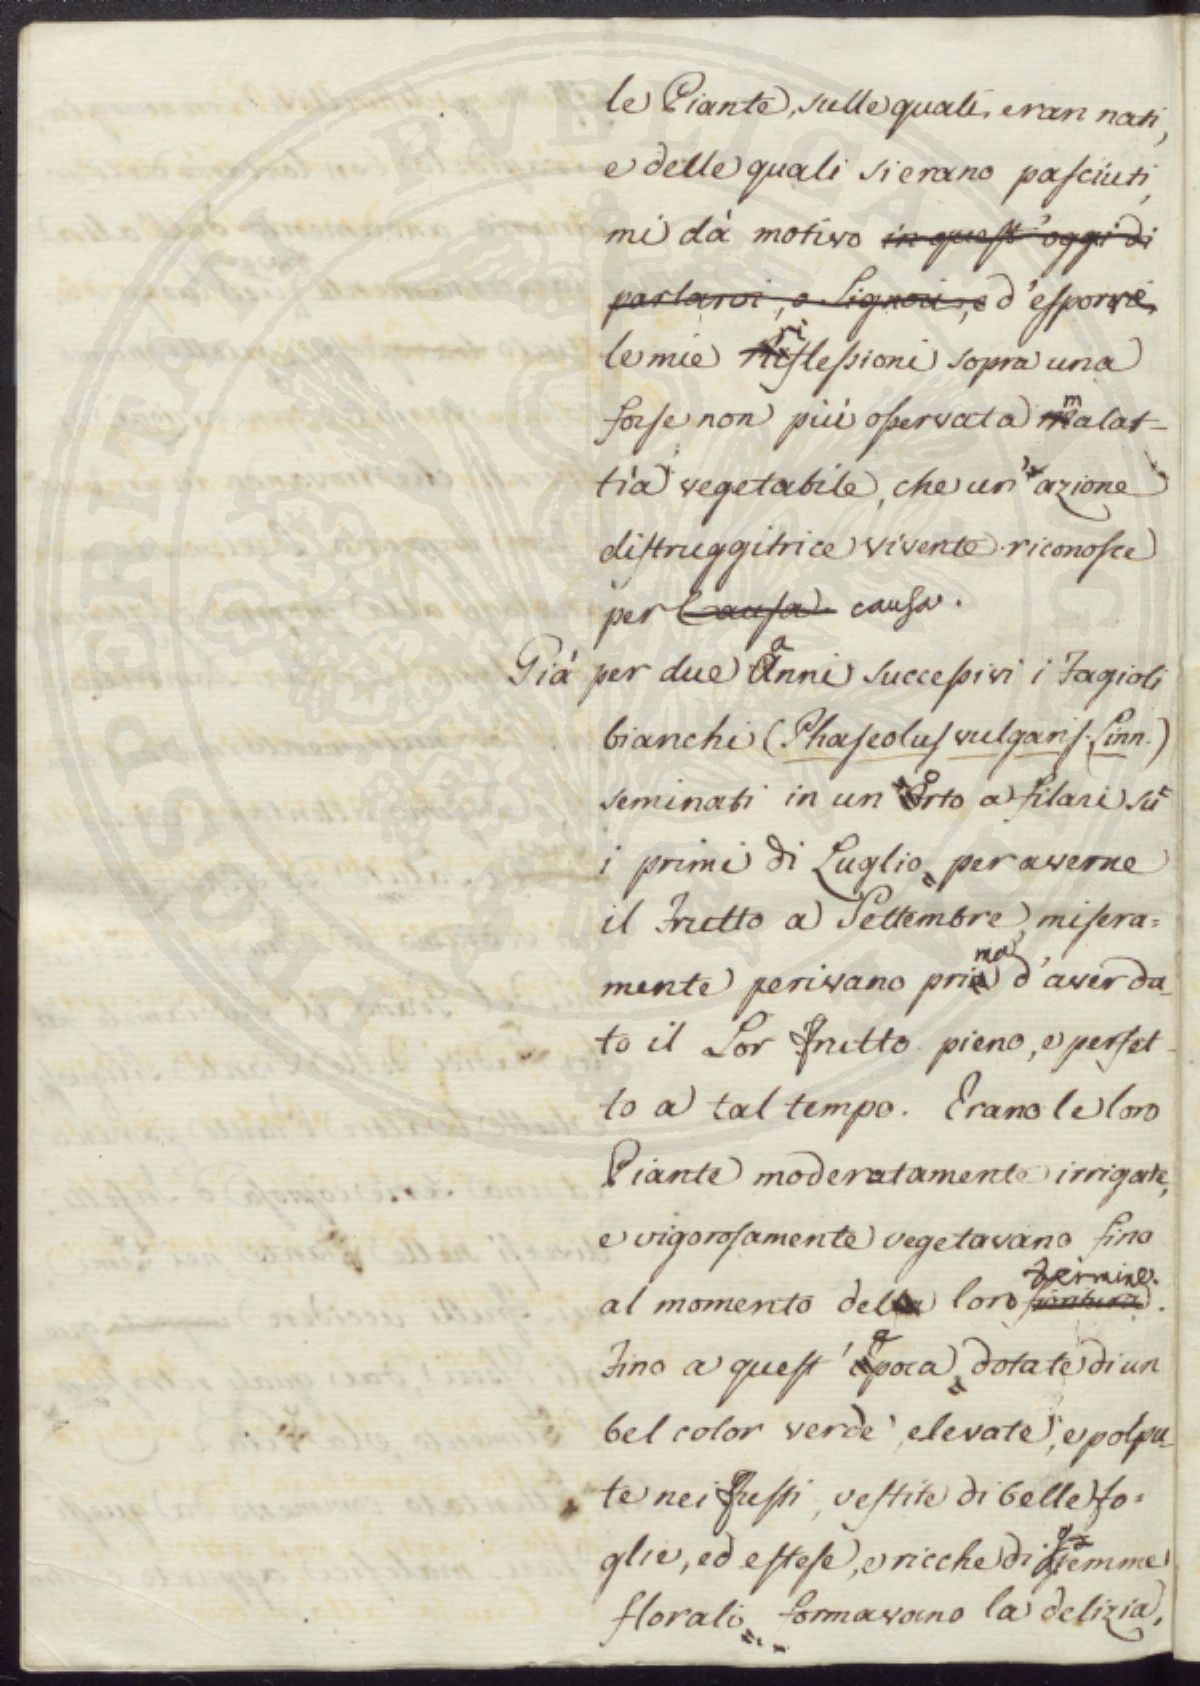 le Piante, sulle quali eran nati,
e delle quali si erano pasciuti,
mi dà motivo in quest'oggi di
parlarvi, o Signori, e d'esporre
le mie riflessioni sopra una
forse non più osservata malat-
tia vegetabile, che un'azione
distruggitrice vivente riconosce
per Causa causa.
Già per due anni successivi i Fagioli
bianchi (Phaseolus vulgaris Linn.)
seminati in un Orto a filari su
i primi di Luglio per averne
il Frutto a Settembre, misera=
mente perivano prima d'aver da-
to il Lor frutto pieno, e perfet-
to a tal tempo. Erano le loro
Piante moderatamente irrigate,
e vigorosamente vegetavano fino
termine.
al momento del loro fioritura.
Fino a quest'epoca, dotate di un
bel color verde, elevate, e polpu-
te nei fusti, vestite di belle fo=
glie, ed estese, e ricche di gemme
florali formavano la delizia,
PVBLICA
PROSPERITATI